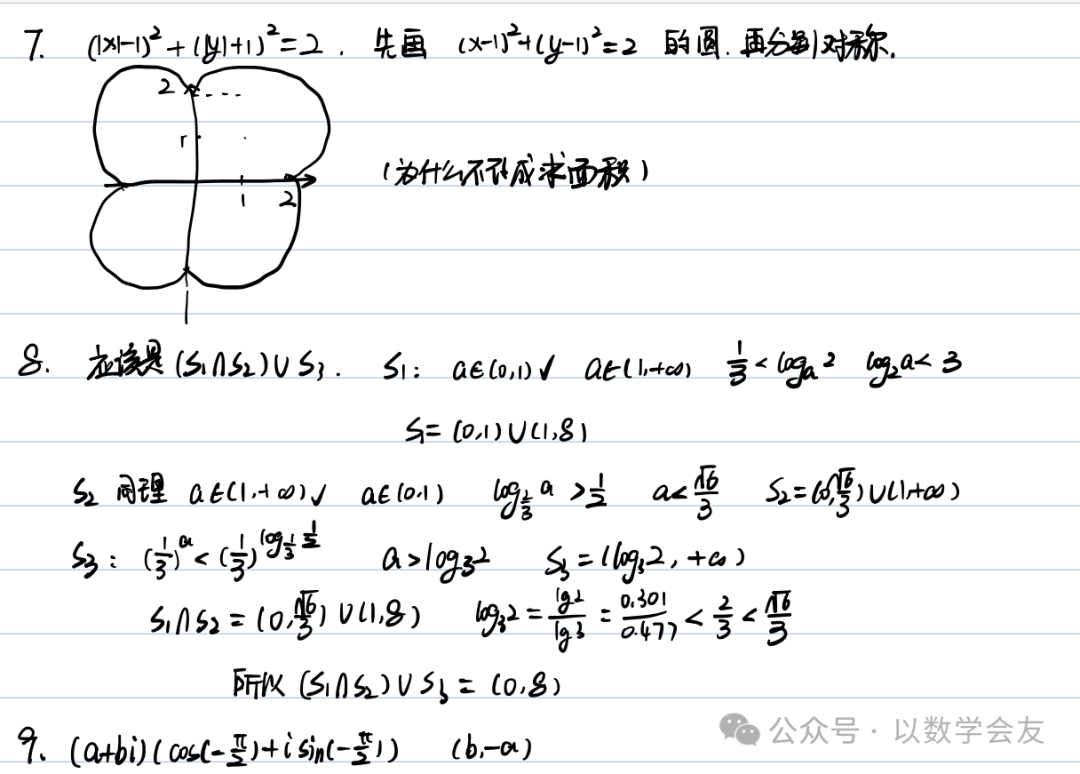 7. (|x|-1)²+(|y|+1)²=2. 先画 (x-1)²+(y-1)²=2 的圆. 再分别对称.
2
1
1 2
(为什么不改成求面积)
8. 应该是 (S₁∩S₂)∪S₃. S₁: a∈(0,1)√ a∈(1,+∞) 1/3<logₐ2 log₂a<3
S₁=(0,1)∪(1,8)
S₂ 同理 a∈(1,+∞)√ a∈(0,1) log_{2/3}a>1/2 a<√6/3 S₂=(0,√6/3)∪(1,+∞)
S₃: (1/3)^a<(1/3)^{log_{1/3}1/2} a>log₃2 S₃=(log₃2,+∞)
S₁∩S₂=(0,√6/3)∪(1,8) log₃2=lg2/lg3=0.301/0.477<2/3<√6/3
所以 (S₁∩S₂)∪S₃=(0,8)
9. (a+bi)(cos(-π/2)+i sin(-π/2)) (b,-a)
公众号·以数学会友